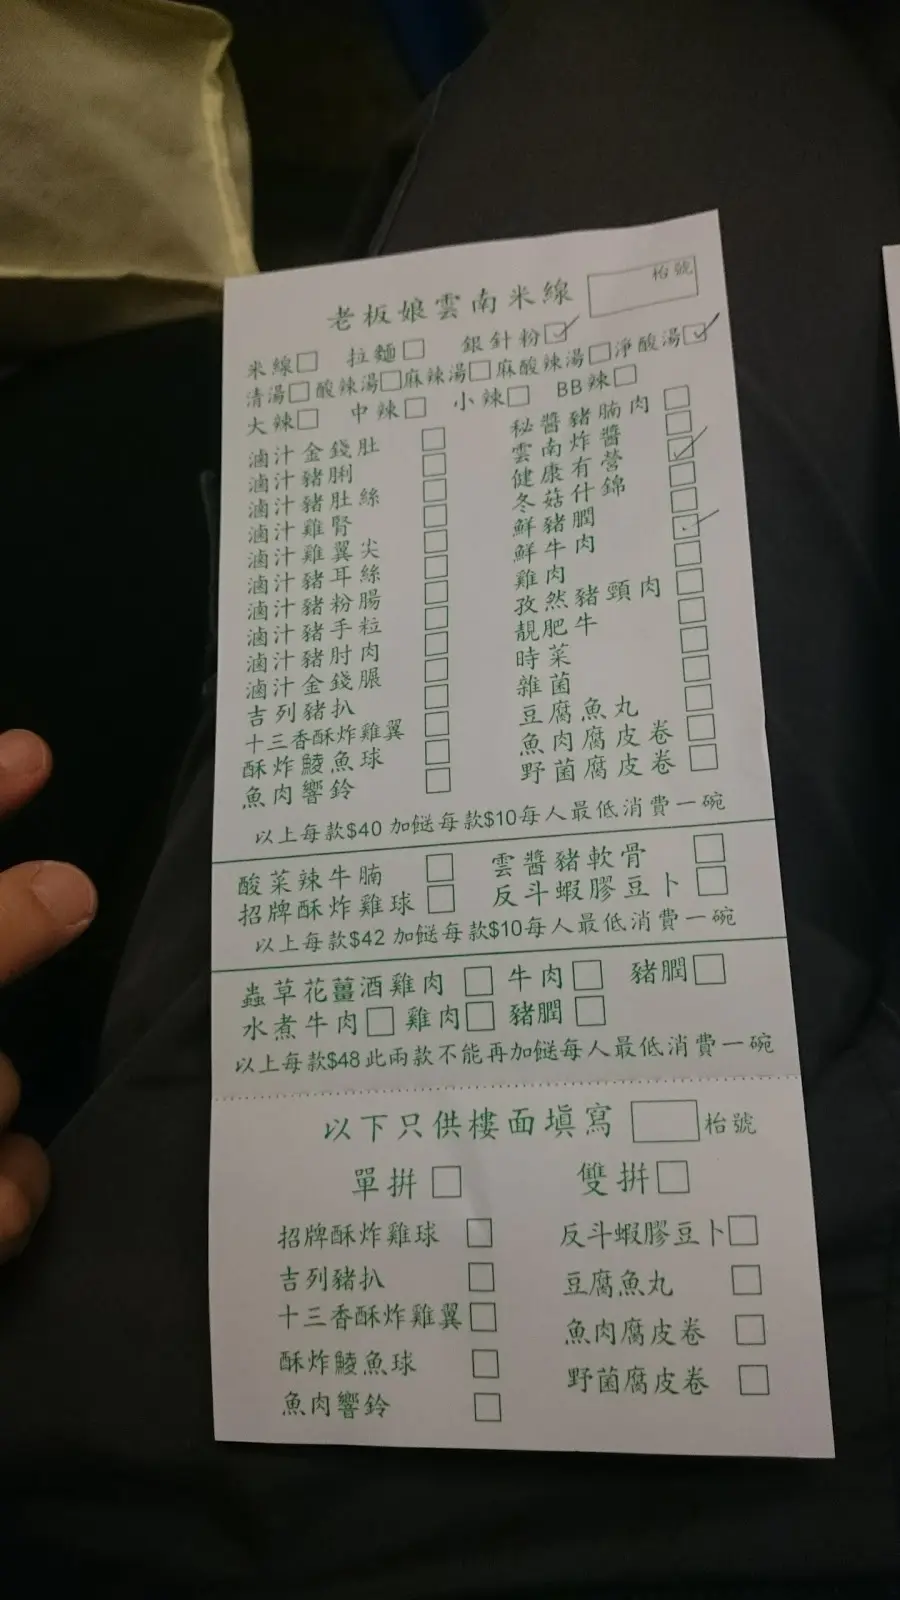 老板娘雲南米線 枱號
米線□ 拉麵□ 銀針粉☑
清湯□酸辣湯□麻辣湯□麻酸辣湯□淨酸湯☑
大辣□ 中辣□ 小辣□ BB辣□
滷汁金錢肚 □ 秘醬豬腩肉 □
滷汁豬脷 □ 雲南炸醬 □
滷汁豬肚絲 □ 健康有營 ☑
滷汁雞腎 □ 冬菇什錦 □
滷汁雞翼尖 □ 鮮豬膶 □
滷汁豬耳絲 □ 鮮牛肉 ☑
滷汁豬粉腸 □ 雞肉 □
滷汁豬手粒 □ 孜然豬頸肉 □
滷汁豬肘肉 □ 靚肥牛 □
滷汁金錢𦟌 □ 時菜 □
吉列豬扒 □ 雜菌 □
十三香酥炸雞翼 □ 豆腐魚丸 □
酥炸鯪魚球 □ 魚肉腐皮卷 □
魚肉響鈴 □ 野菌腐皮卷 □
以上每款$40 加餸每款$10每人最低消費一碗
酸菜辣牛腩 □ 雲醬豬軟骨 □
招牌酥炸雞球 □ 反斗蝦膠豆卜 □
以上每款$42 加餸每款$10每人最低消費一碗
蟲草花薑酒雞肉 □ 牛肉□ 豬膶□
水煮牛肉□ 雞肉□ 豬膶□
以上每款$48此兩款不能再加餸每人最低消費一碗
以下只供樓面填寫 □枱號
單拼□ 雙拼□
招牌酥炸雞球 □ 反斗蝦膠豆卜□
吉列豬扒 □ 豆腐魚丸 □
十三香酥炸雞翼□ 魚肉腐皮卷 □
酥炸鯪魚球 □ 野菌腐皮卷 □
魚肉響鈴 □